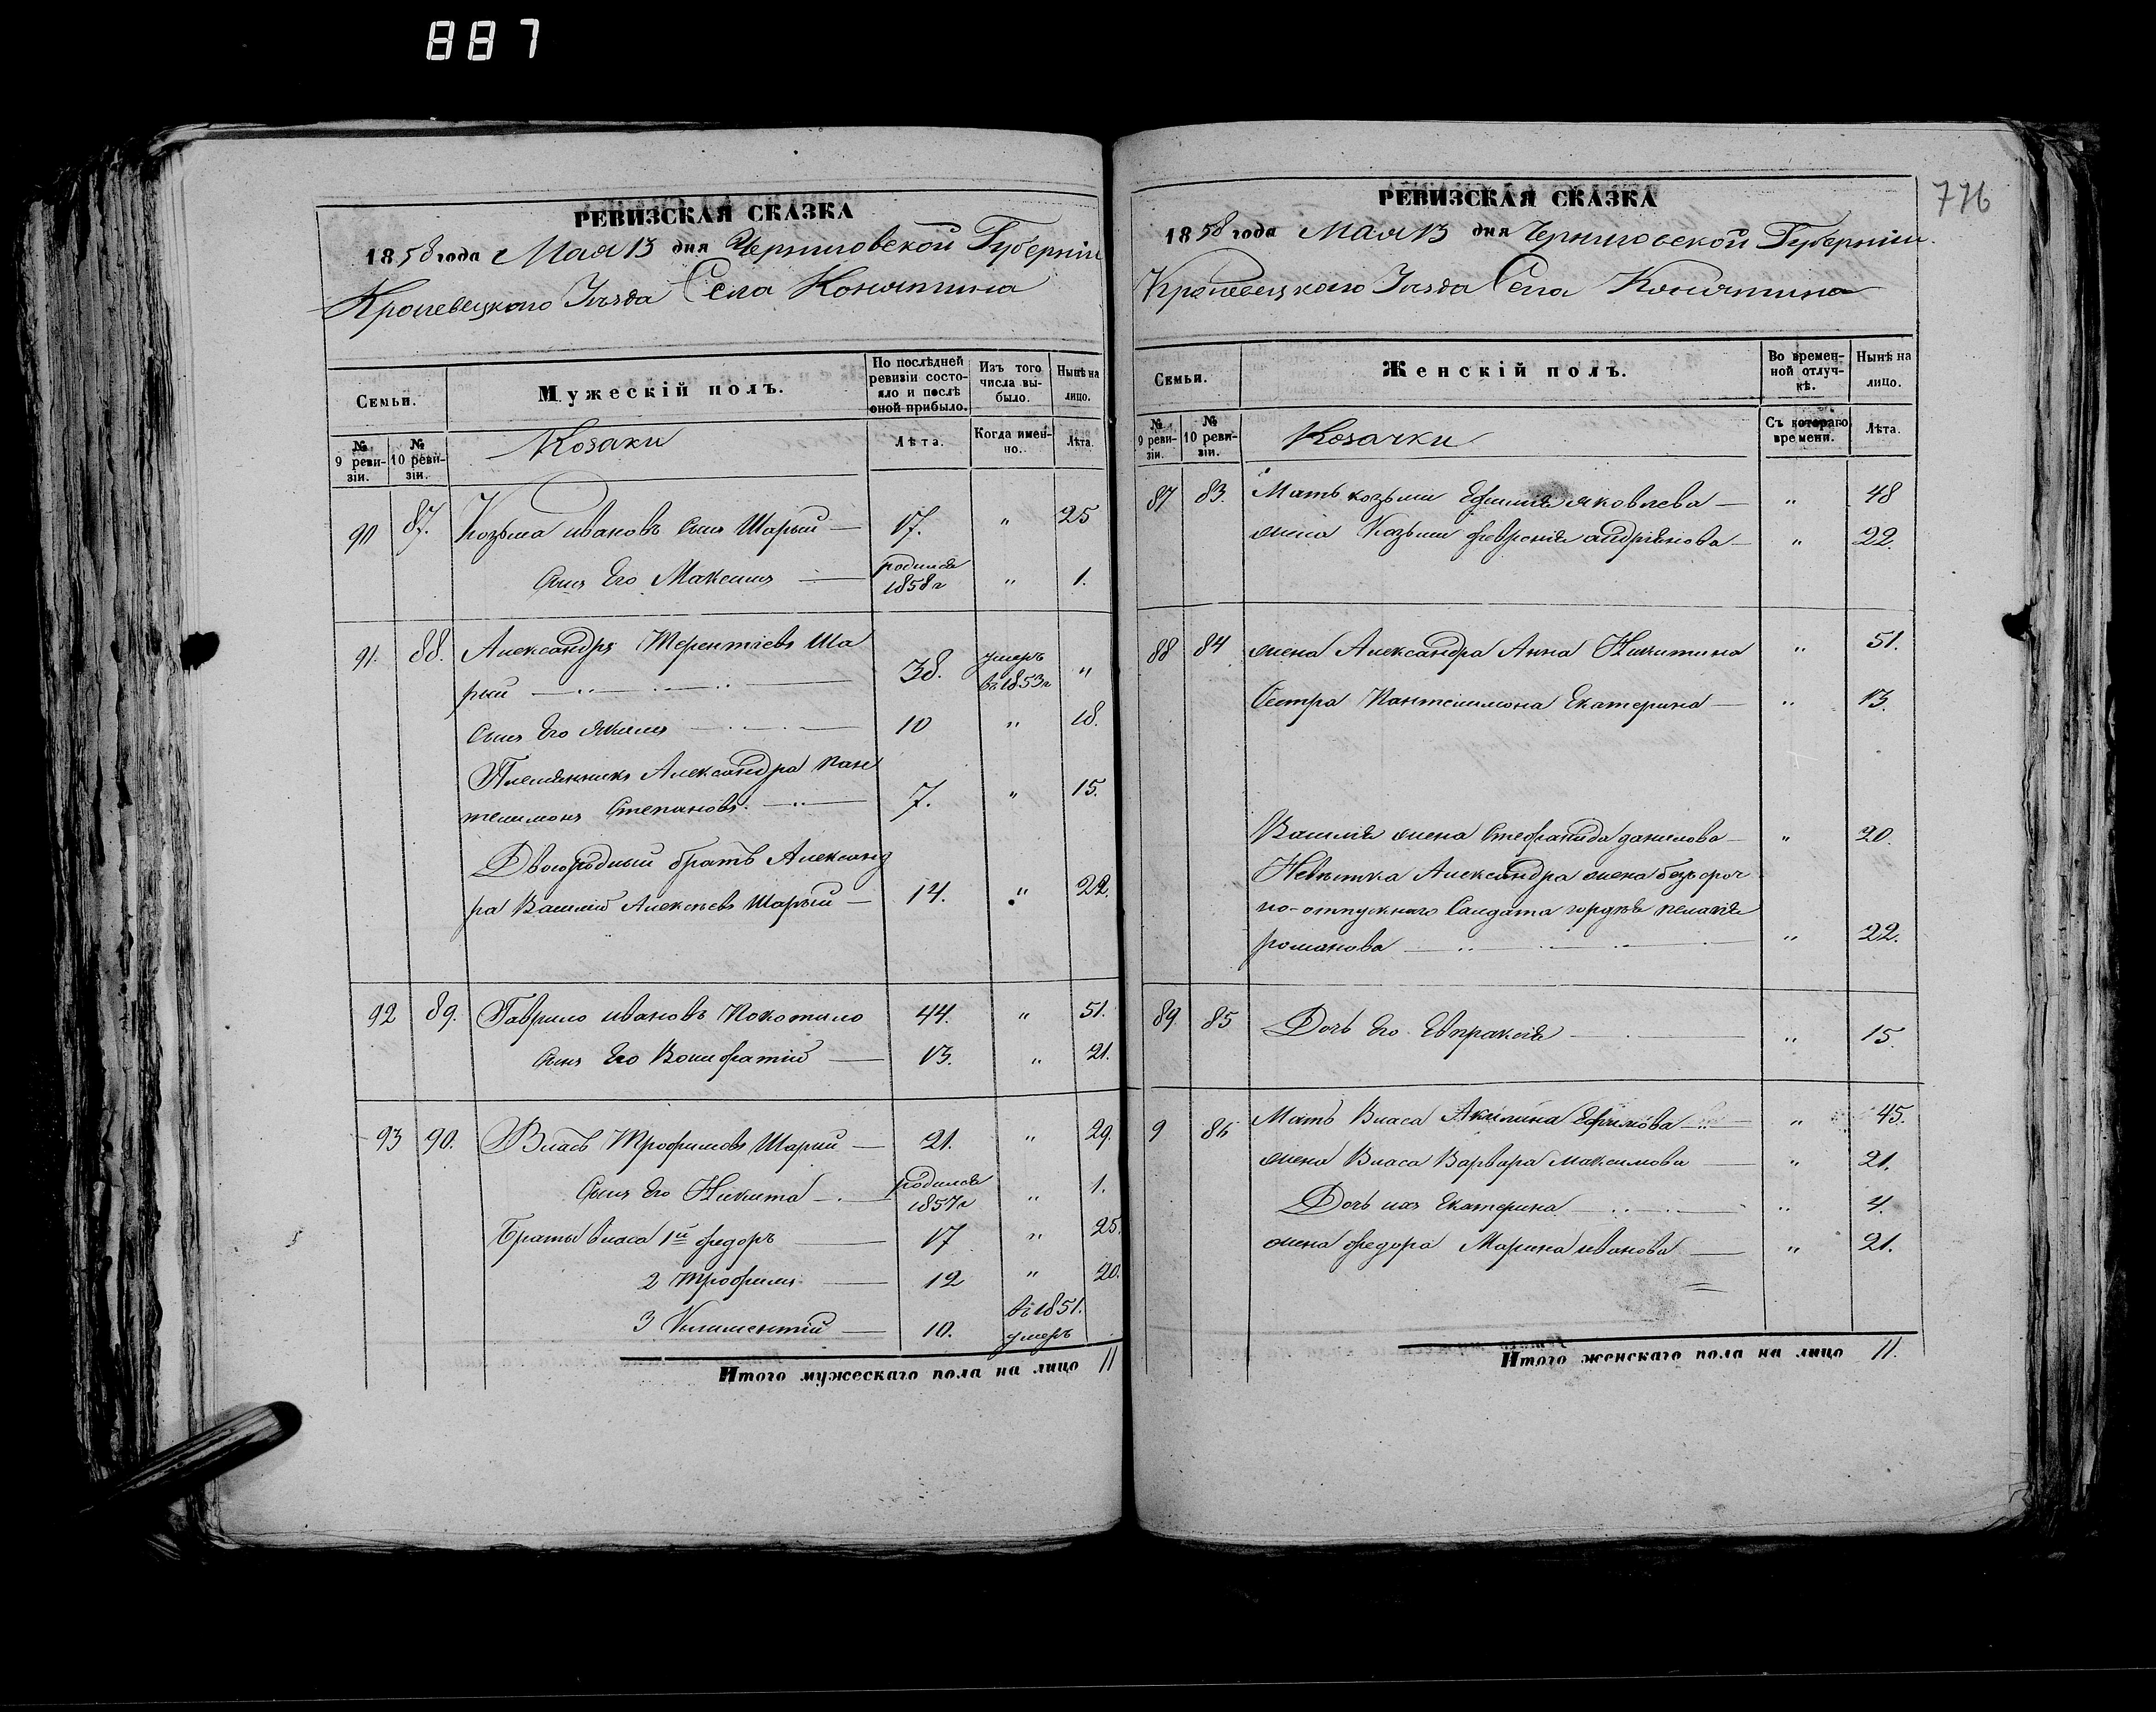 887
РЕВИЗСКАЯ СКАЗКА
1858 года Мая 13 дня Черниговской Губерніи
Кролевецкого Уѣзда Села Конятина
Семьи.
Мужескій полъ.
По послѣдней ревизіи состояло и послѣ оной прибыло.
Изъ того числа выбыло.
Нынѣ на лицо.
№ 9 ревизіи.
№ 10 ревизіи.
Козаки
Лѣта.
Когда именно.
Лѣта.
90 87. Козьма ивановъ Сынъ Шарый — 17. " 25
Сынъ Его Максимъ — родился 1858 г " 1.
91. 88. Александръ Терентіевъ Ша
рый — 38. умеръ въ 1853 г "
Сынъ Его Якимъ — 10 " 18.
Племянникъ Александра Пан
телимонъ Степановъ. — 7. " 15.
Двоюродный братъ Александ
ра Василій Алексѣевъ Шарый — 14. " 22.
92 89. Гаврило ивановъ Кокотило 44. " 51.
Сынъ Его Вонифатій — 13. " 21.
93 90. Власъ Трофимовъ Шарый — 21. " 29.
Сынъ Его Никита — родился 1857 г " 1.
Братья Власа 1й федоръ — 17 " 25.
2 Трофимъ — 12 " 20.
3 Климентій — 10. въ 1851. умеръ
Итого мужескаго пола на лицо 11
776
РЕВИЗСКАЯ СКАЗКА
1858 года Мая 13 дня Черниговской Губерніи
Кролевецкого Уѣзда Села Конятина
Семьи.
Женскій полъ.
Во временной отлучкѣ.
Нынѣ на лицо.
№ 9 ревизіи.
№ 10 ревизіи.
Козачки
Съ котораго времени.
Лѣта.
87 83. Мать козьми Ефимія яковлева — " 48
жена Козьми февронія андріянова — " 22.
88 84 жена Александра Анна Никитина " 51.
Сестра Пантелимона Екатерина — " 13.
Василія жена Стефанида данилова — " 20.
Невѣстка Александра жена безсроч
но-отпускного Салдата гордѣя пелагія
романова — " 22.
89 85 Дочь Его Евпраксія — " 15.
9 86 Мать Власа Акилина Ефимова — " 45.
жена Власа Варвара Максимова — " 21.
Дочь ихъ Екатерина — " 4.
жена федора Марина иванова — " 21.
Итого женскаго пола на лицо 11.